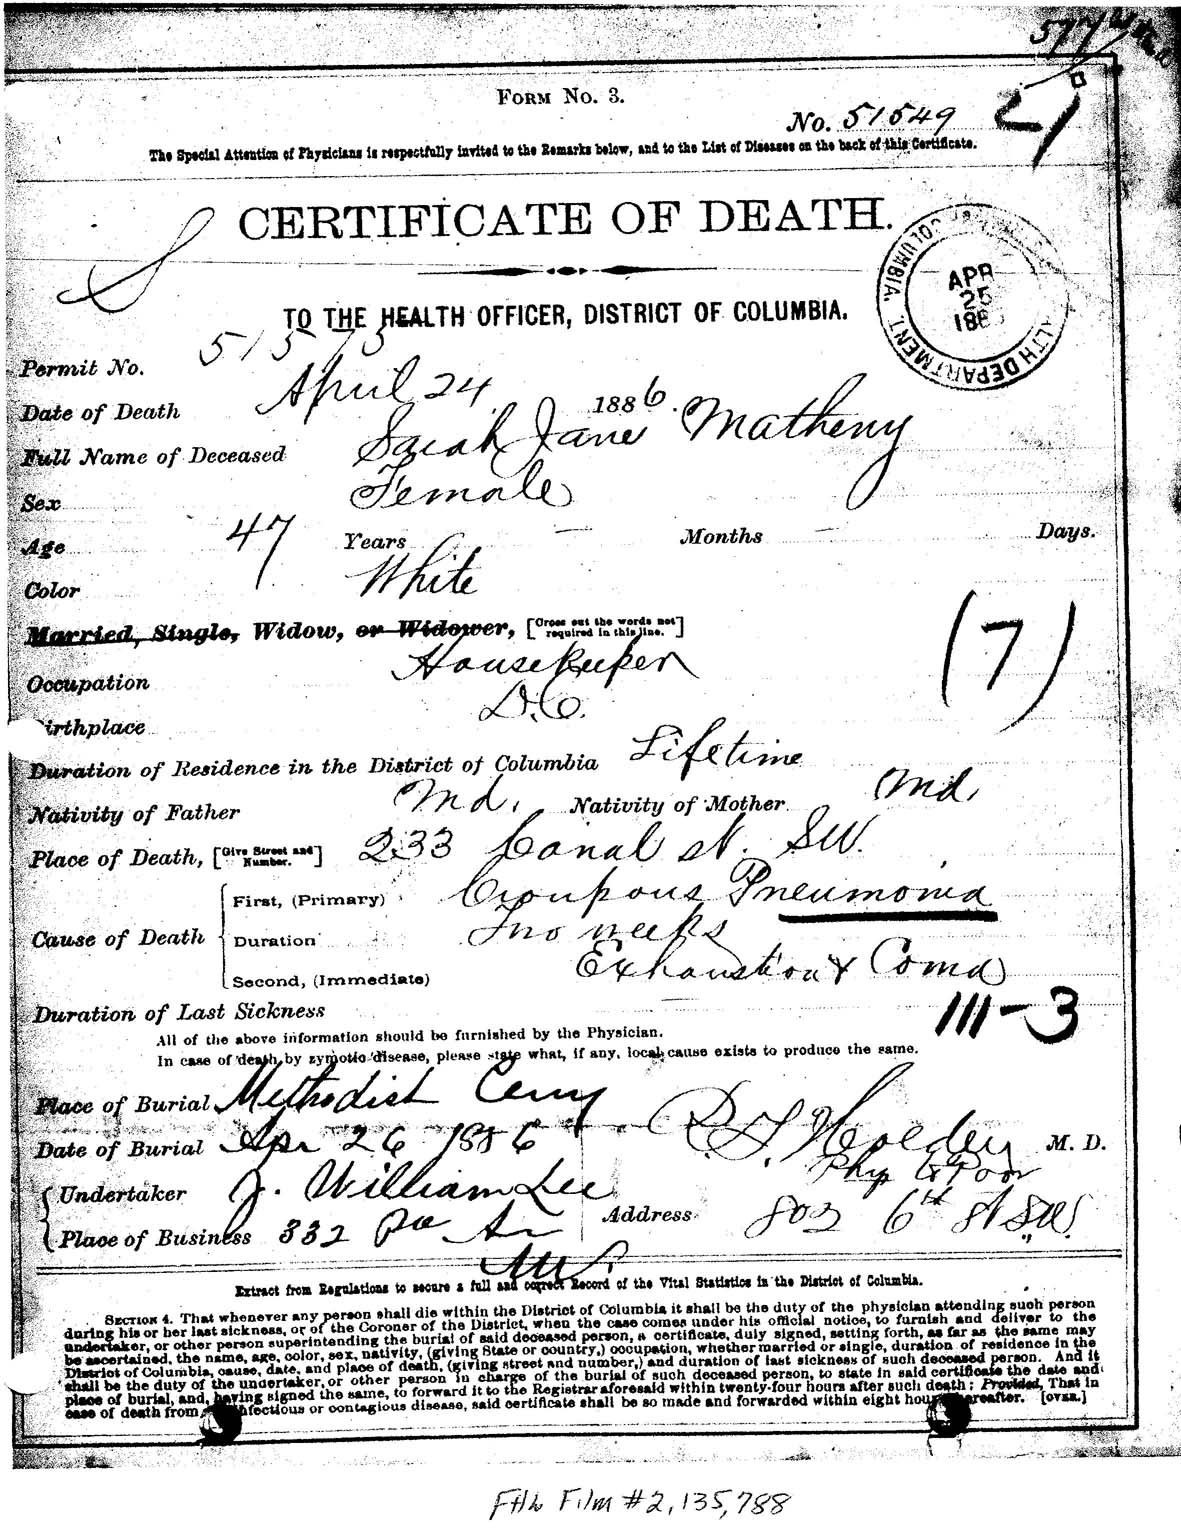 577
FORM No. 3.
No. 51549
21
The Special Attention of Physicians is respectfully invited to the Remarks below, and to the List of Diseases on the back of this Certificate.
CERTIFICATE OF DEATH.
APR
25
188
TO THE HEALTH OFFICER, DISTRICT OF COLUMBIA.
Permit No. 51575
Date of Death April 24 1886.
Full Name of Deceased Sarah Jane Matheny
Sex Female
Age 47 Years — Months — Days.
Color White
Married, Single, Widow, or Widower, [Cross out the words not required in this line.]
Occupation Housekeeper
(7)
Birthplace D.C.
Duration of Residence in the District of Columbia Lifetime
Nativity of Father Md. Nativity of Mother Md.
Place of Death, [Give Street and Number.] 233 Canal st. SW.
First, (Primary) Croupous Pneumonia
Cause of Death
Duration Two weeks
Second, (Immediate) Exhaustion & Coma
Duration of Last Sickness
III-3
All of the above information should be furnished by the Physician.
In case of death by zymotic disease, please state what, if any, local cause exists to produce the same.
Place of Burial Methodist Cemy
Date of Burial Apr 26 1886 M. D.
Phys to Poor
Undertaker J. William Lee
Address 803 6th St SW.
Place of Business 332 Pa Av
NW.
Extract from Regulations to secure a full and correct Record of the Vital Statistics in the District of Columbia.
SECTION 4. That whenever any person shall die within the District of Columbia it shall be the duty of the physician attending such person
during his or her last sickness, or of the Coroner of the District, when the case comes under his official notice, to furnish and deliver to the
undertaker, or other person superintending the burial of said deceased person, a certificate, duly signed, setting forth, as far as the same may
be ascertained, the name, age, color, sex, nativity, (giving State or country,) occupation, whether married or single, duration of residence in the
District of Columbia, cause, date, and place of death, (giving street and number,) and duration of last sickness of such deceased person. And it
shall be the duty of the undertaker, or other person in charge of the burial of such deceased person, to state in said certificate the date and
place of burial, and, having signed the same, to forward it to the Registrar aforesaid within twenty-four hours after such death; Provided, That in
case of death from infectious or contagious disease, said certificate shall be so made and forwarded within eight hours thereafter. [OVER.]
FHL Film #2,135,788